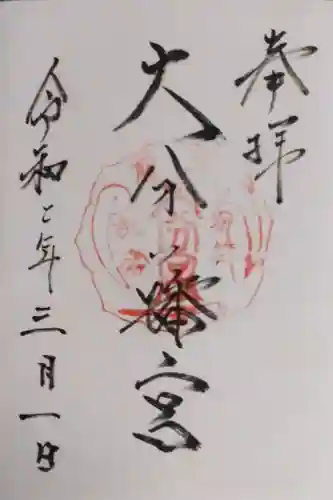 奉拝
大分八幡宮
令和二年三月一日